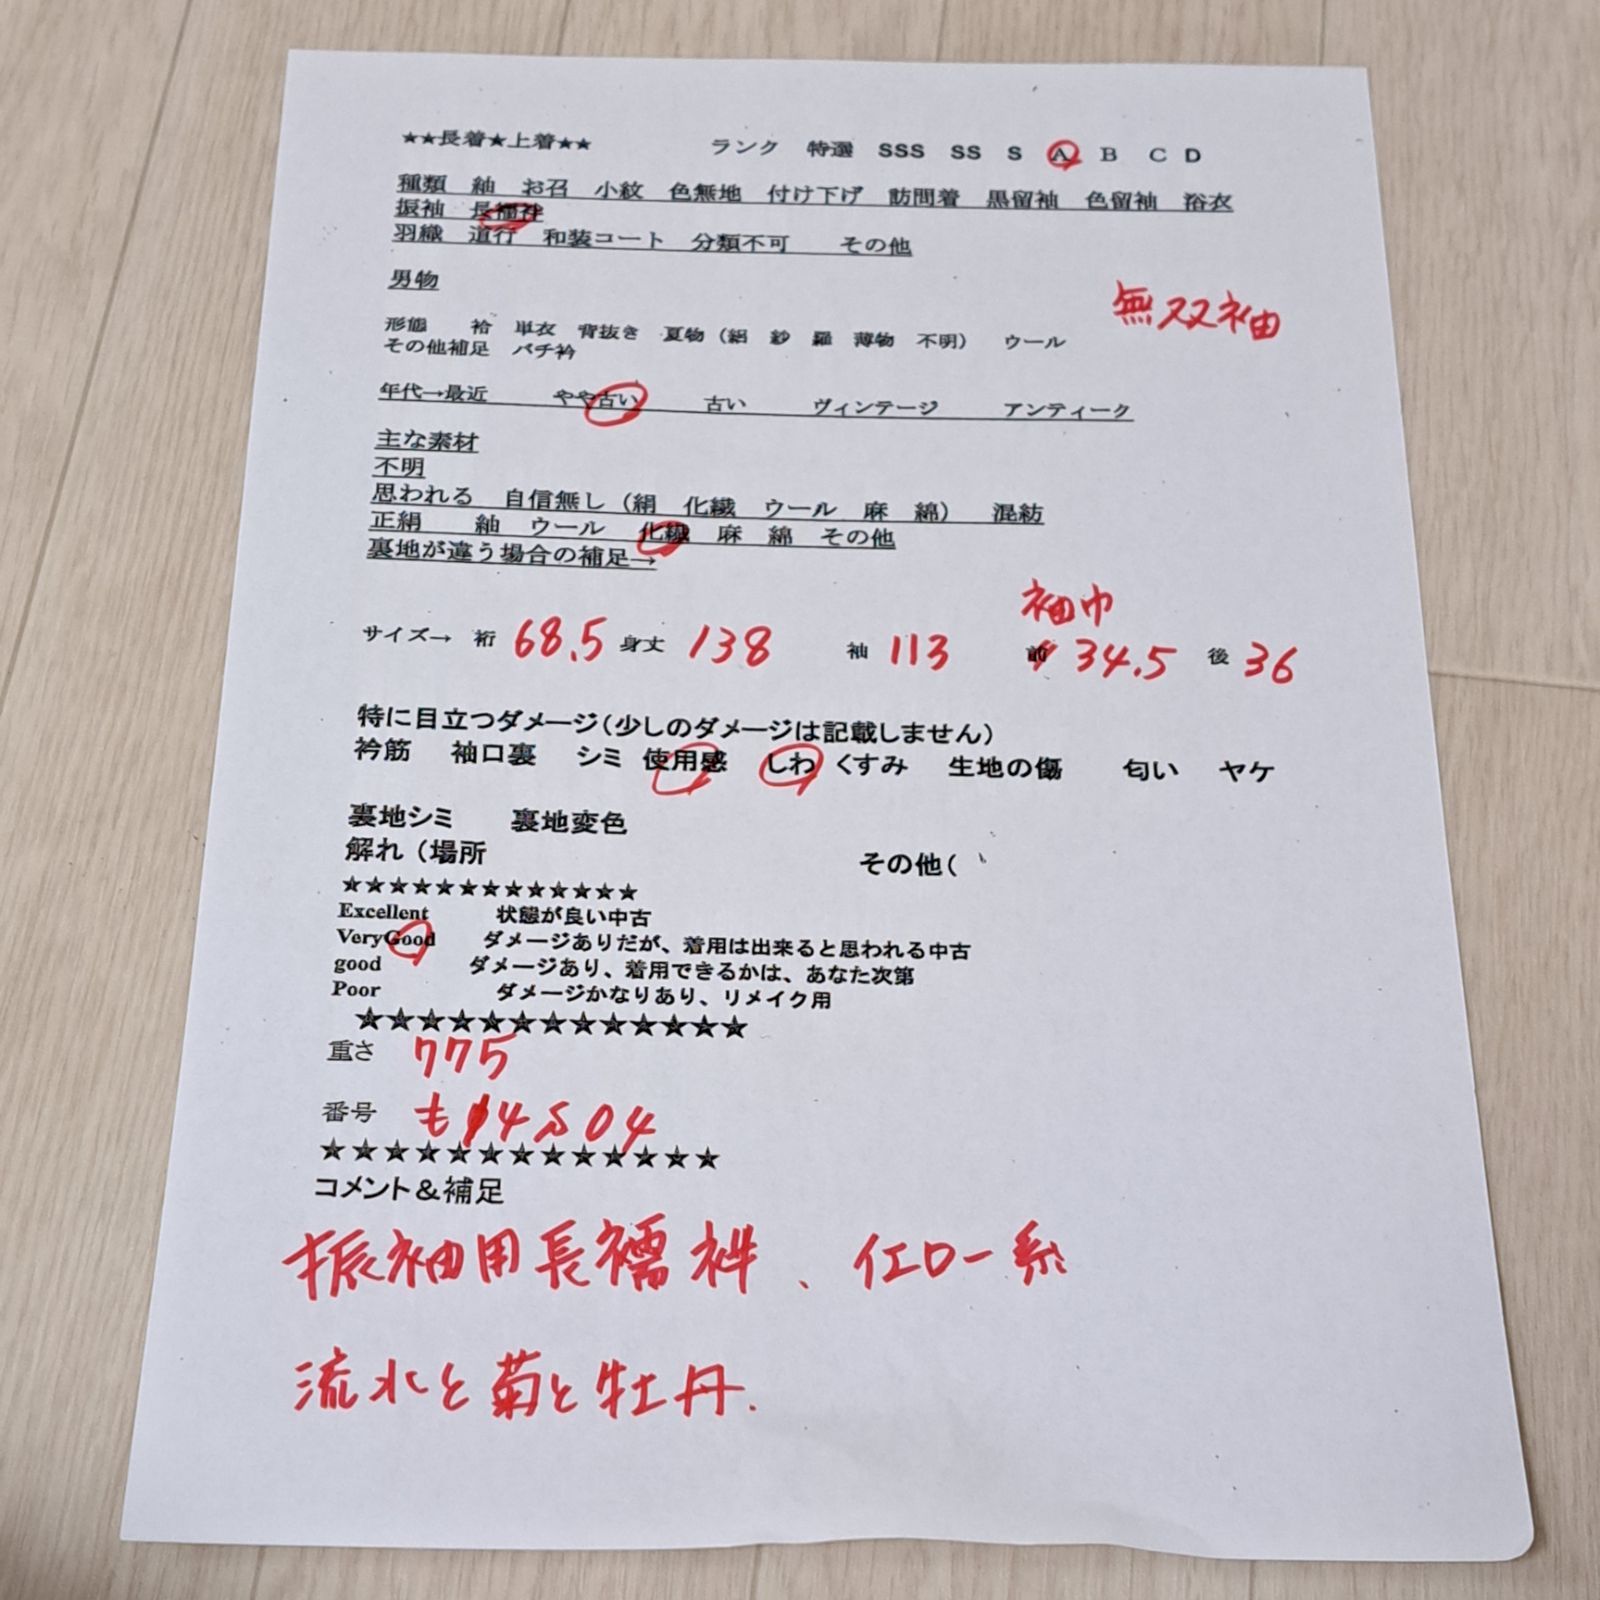 ★★長着★上着★★ ランク 特選 SSS SS S A B C D
種類 紬 お召 小紋 色無地 付け下げ 訪問着 黒留袖 色留袖 浴衣
振袖 長襦袢
羽織 道行 和装コート 分類不可 その他
男物
無双袖
形態 袷 単衣 背抜き 夏物（絽 紗 羅 薄物 不明） ウール
その他補足 バチ衿
年代→最近 やや古い 古い ヴィンテージ アンティーク
主な素材
不明
思われる 自信無し（絹 化繊 ウール 麻 綿） 混紡
正絹 紬 ウール 化繊 麻 綿 その他
裏地が違う場合の補足→
袖巾
サイズ→ 裄 68.5 身丈 138 袖 113 前 34.5 後 36
特に目立つダメージ（少しのダメージは記載しません）
衿筋 袖口裏 シミ 使用感 しわ くすみ 生地の傷 匂い ヤケ
裏地シミ 裏地変色
解れ（場所 その他（
★★★★★★★★★★★★★
Excellent 状態が良い中古
VeryGood ダメージありだが、着用は出来ると思われる中古
good ダメージあり、着用できるかは、あなた次第
Poor ダメージかなりあり、リメイク用
★★★★★★★★★★★★★
重さ 775
番号
★★★★★★★★★★★★★
コメント＆補足
振袖用長襦袢、イエロー系
流水と菊と牡丹.